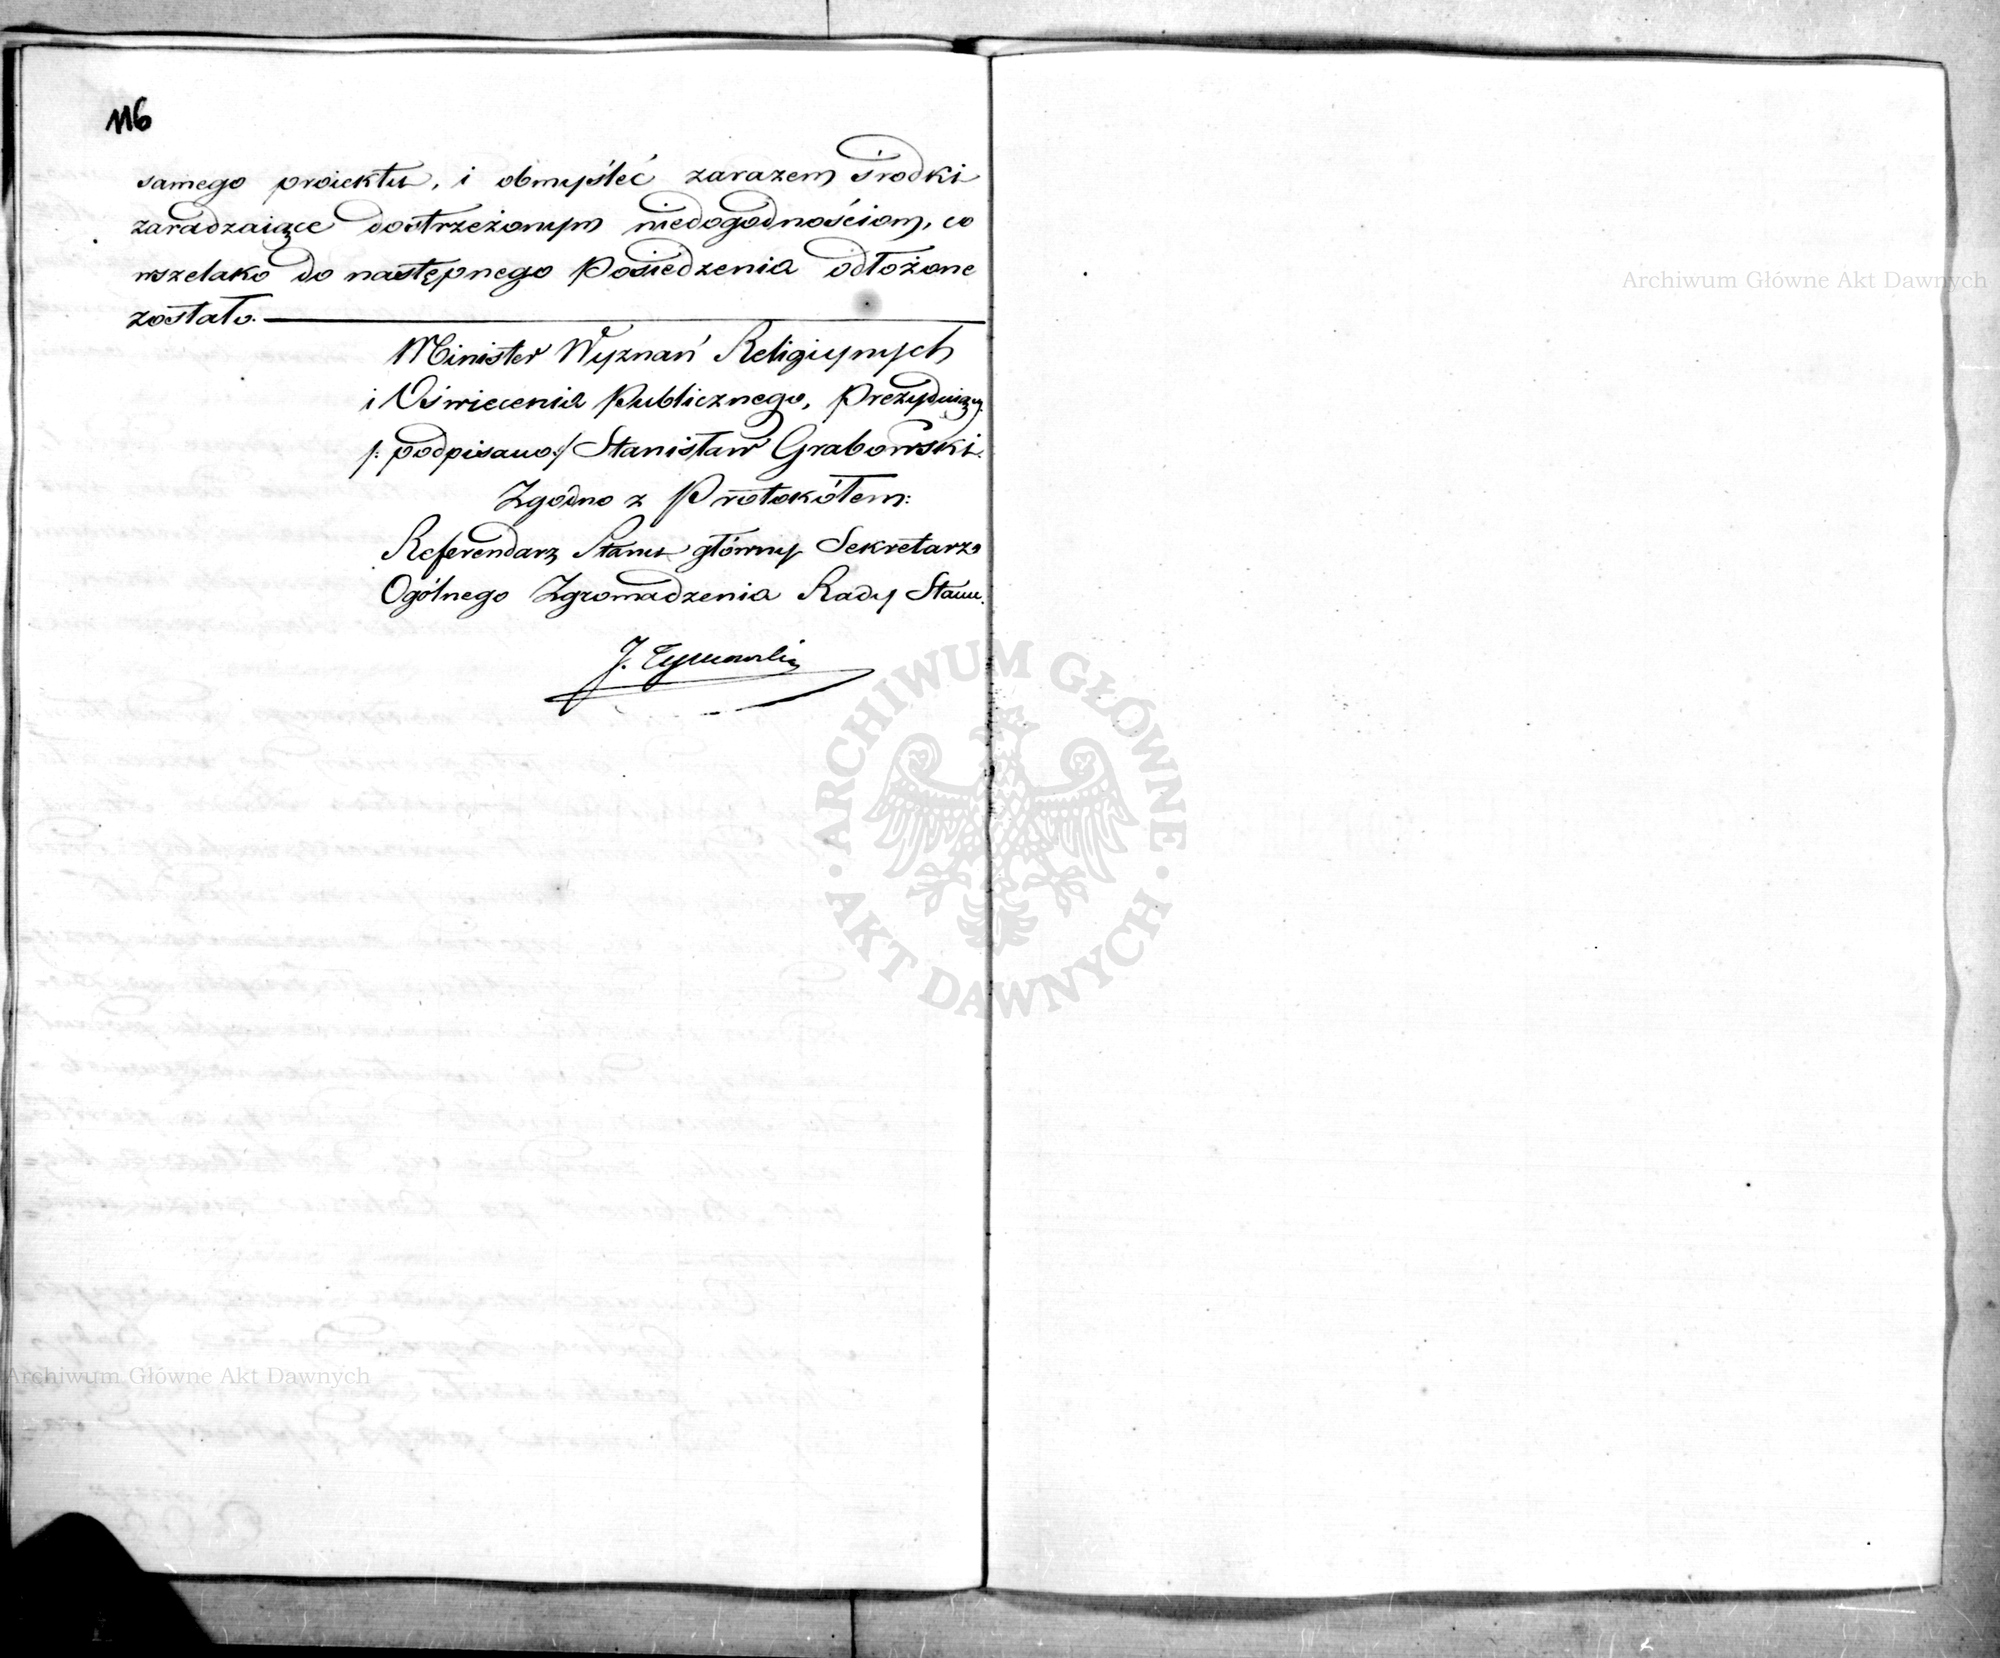 116
samego proiektu, i obmyśleć zarazem środki
zaradzaiące dostrzeżonym niedogodnościom, co
wszelako do następnego Posiedzenia odłożone
zostało.
Minister Wyznań Religijnych
i Oświecenia Publicznego, Prezyduiący
/: podpisano :/ Stanisław Grabowski.
Zgodno z Protokółem:
Referendarz Stanu główny Sekretarz
Ogólnego Zgromadzenia Rady Stanu.
J. Tymowski
Archiwum Główne Akt Dawnych
ARCHIWUM GŁÓWNE AKT DAWNYCH
Archiwum Główne Akt Dawnych